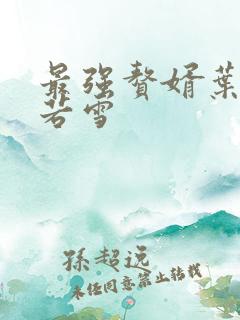 最强赘婿葉
若雪
孫超远
未经同意禁止转载